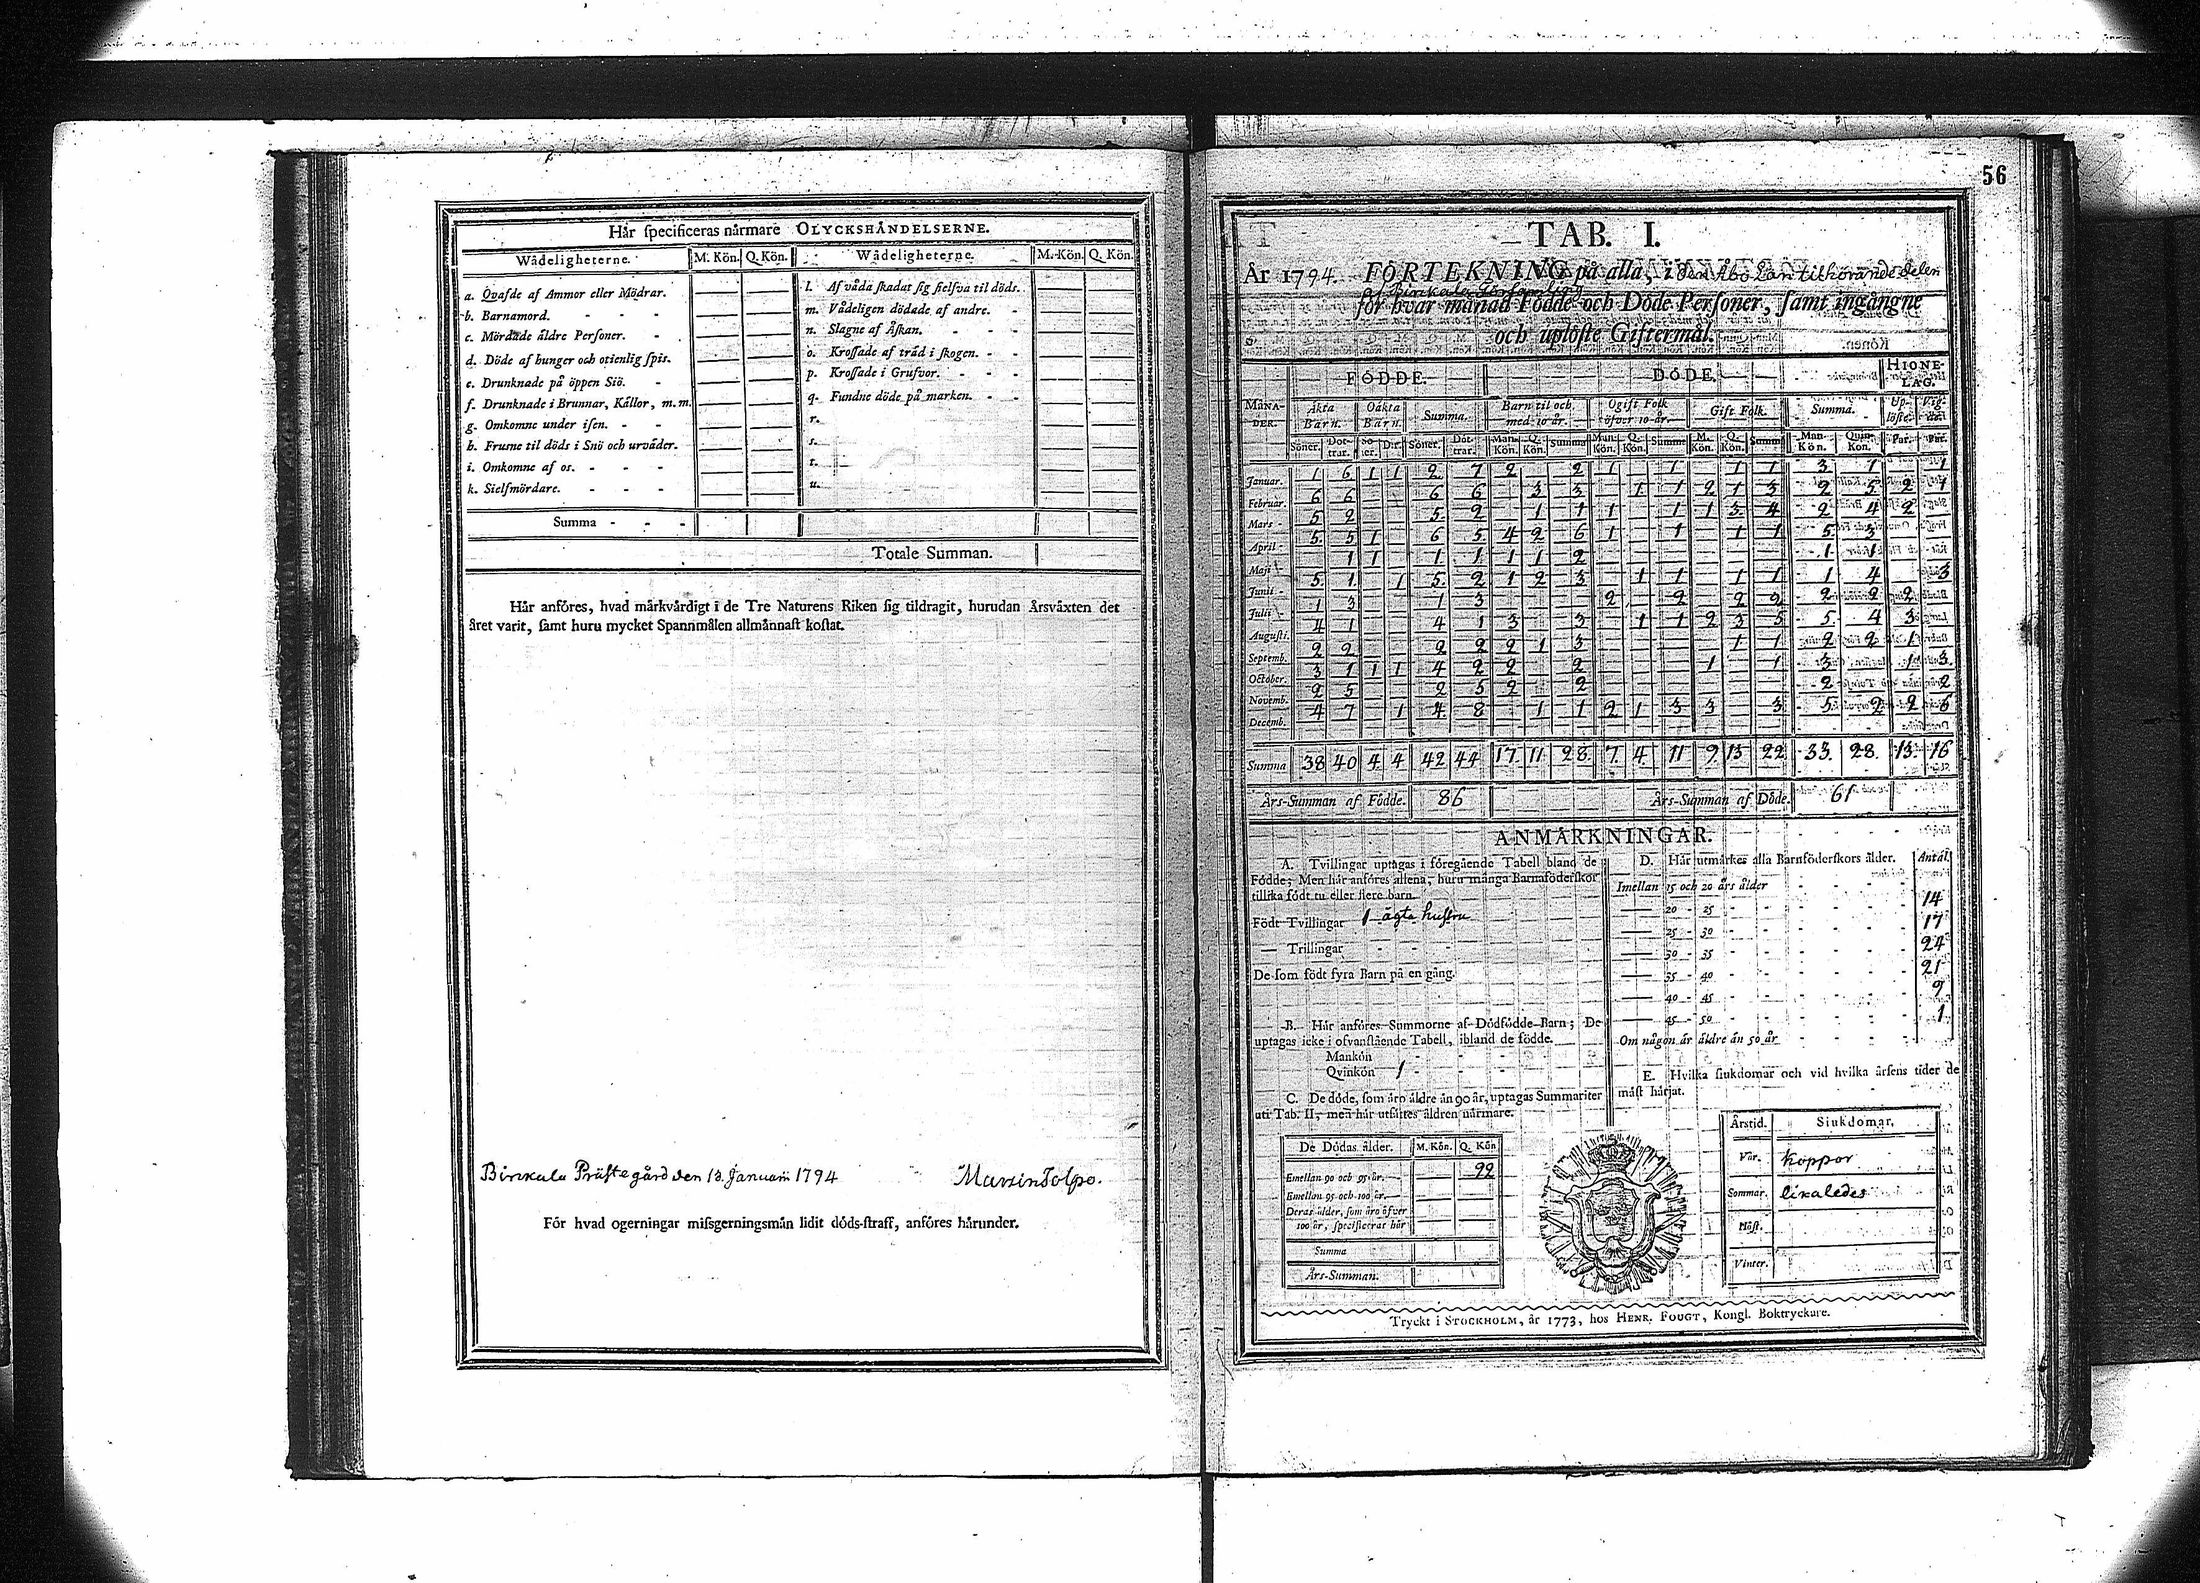 Hår ſpecificeras nårmare OLYCKSHÅNDELSERNE.
Wådeligheterne. M. Kön. Q. Kön. Wådeligheterne. M. Kön. Q. Kön.
a. Qvafde af Ammor eller Mödrar.
b. Barnamord. - - -
c. Mördade åldre Perſoner. -
d. Döde af hunger och otienlig ſpis.
e. Drunknade på öppen Siö. -
f. Drunknade i Brunnar, Kållor, m.m.
g. Omkomne under iſen. - -
h. Fruſne til döds i Snö och urvåder.
i. Omkomne af os. - - -
k. Sielfmördare. - - -
l. Af våda ſkadat ſig ſielfva til döds.
m. Vådeligen dödade af andre. -
n. Slagne af Åſkan. - - -
o. Kroſſade af tråd i ſkogen. - -
p. Kroſſade i Grufvor. - - -
q. Fundne döde på marken. - -
r.
s.
t.
u.
Summa - - -
Totale Summan.
Hår anföres, hvad mårkvårdigt i de Tre Naturens Riken ſig tildragit, hurudan Årsvåxten det
året varit, ſamt huru mycket Spannmålen allmånnaſt koſtat.
Birkala Präſtegård den 13. Januarii 1794
För hvad ogerningar miſsgerningsmån lidit döds-ſtraff, anföres hårunder.
56
TAB. I.
År 1794. FÖRTEKNING på alla, i den Åbo Län tilhörande delen
af Birkala Församling
för hvar månad Födde och Döde Perſoner, ſamt ingångne
och uplöſte Giftermål.
FÖDDE. DÖDE. HIONELAG.
MÅNADER. Åkta Barn. Oåkta Barn. Summa. Barn til och med 10 år. Ogift Folk öfver 10 år. Gift Folk. Summa. Uplöſte. Vigde.
Söner. Dottrar. Söner. D:r. Söner. Döttrar. Man-Kön. Q. Kön. Summa Man-Kön. Q. Kön. Summa M. Kön. Q. Kön. Summa Man-Kön. Quin-Kön. Par. Par.
Januar. 1 6 1 1 2 7 2 2 1 1 1 1 3 1 1
Februar. 6 6 6 6 3 3 1 1 2 1 3 2 5 2 1
Mars - 5 2 5 2 1 1 1 1 1 3 4 2 4 2
April - 5 5 1 6 5 4 2 6 1 1 1 1 5 3
Maji 1 1 1 1 1 1 2 1 1
Junii - 5 1 1 5 2 1 2 3 1 1 1 1 1 4 3
Julii 1 3 1 3 2 2 2 2 2 2 2
Auguſti. 4 1 4 1 3 3 1 1 2 3 5 5 4 3
Septemb. 2 2 2 2 2 1 3 1 1 2 2 1
October. 3 1 1 1 4 2 2 2 1 1 3 1 3
Novemb. 2 5 2 5 2 2 2 2
Decemb. 4 7 1 4 8 1 1 2 1 3 3 3 5 2 2 6
Summa 38 40 4 4 42 44 17 11 28 7 4 11 9 13 22 33 28 13 16
Års-Summan af Födde. 86 Års-Summan af Döde. 61
ANMÅRKNINGAR.
A. Tvillingar uptagas i föregående Tabell bland de
Födde; Men hår anföres allena, huru många Barnaföderſkor
tillika födt tu eller flere barn.
Födt Tvillingar 1 ägta huſtru
— Trillingar - - -
De ſom födt fyra Barn på en gång.
B. Hår anföres Summorne af Dödfödde Barn; De
uptagas icke i ofvanſtående Tabell, ibland de födde.
Mankön - - -
Qvinkön 1 - - -
C. De döde, ſom åro åldre ån 90 år, uptagas Summariter
uti Tab. II, men hår utſåttes åldren nårmare.
De Dödas ålder. M. Kön. Q. Kön
Emellan 90 och 95 år. 92
Emellan 95 och 100 år.
Deras ålder, ſom åro öfver
100 år, ſpecificeras hår
Summa
Års-Summan.
D. Hår utmårkes alla Barnföderſkors ålder. Antal.
Imellan 15 och 20 års ålder
20 - 25 - 14
25 - 30 - 17
30 - 35 - 24
35 - 40 - 21
40 - 45 - 9
45 - 50 - 1
Om någon år åldre ån 50 år
E. Hvilka ſiukdomar och vid hvilka årſens tider de
måſt hårjat.
Årstid. Siukdomar.
Vår. Koppor
Sommar.
Höſt.
Vinter.
Tryckt i STOCKHOLM, år 1773, hos HENR. FOUGT, Kongl. Boktryckare.